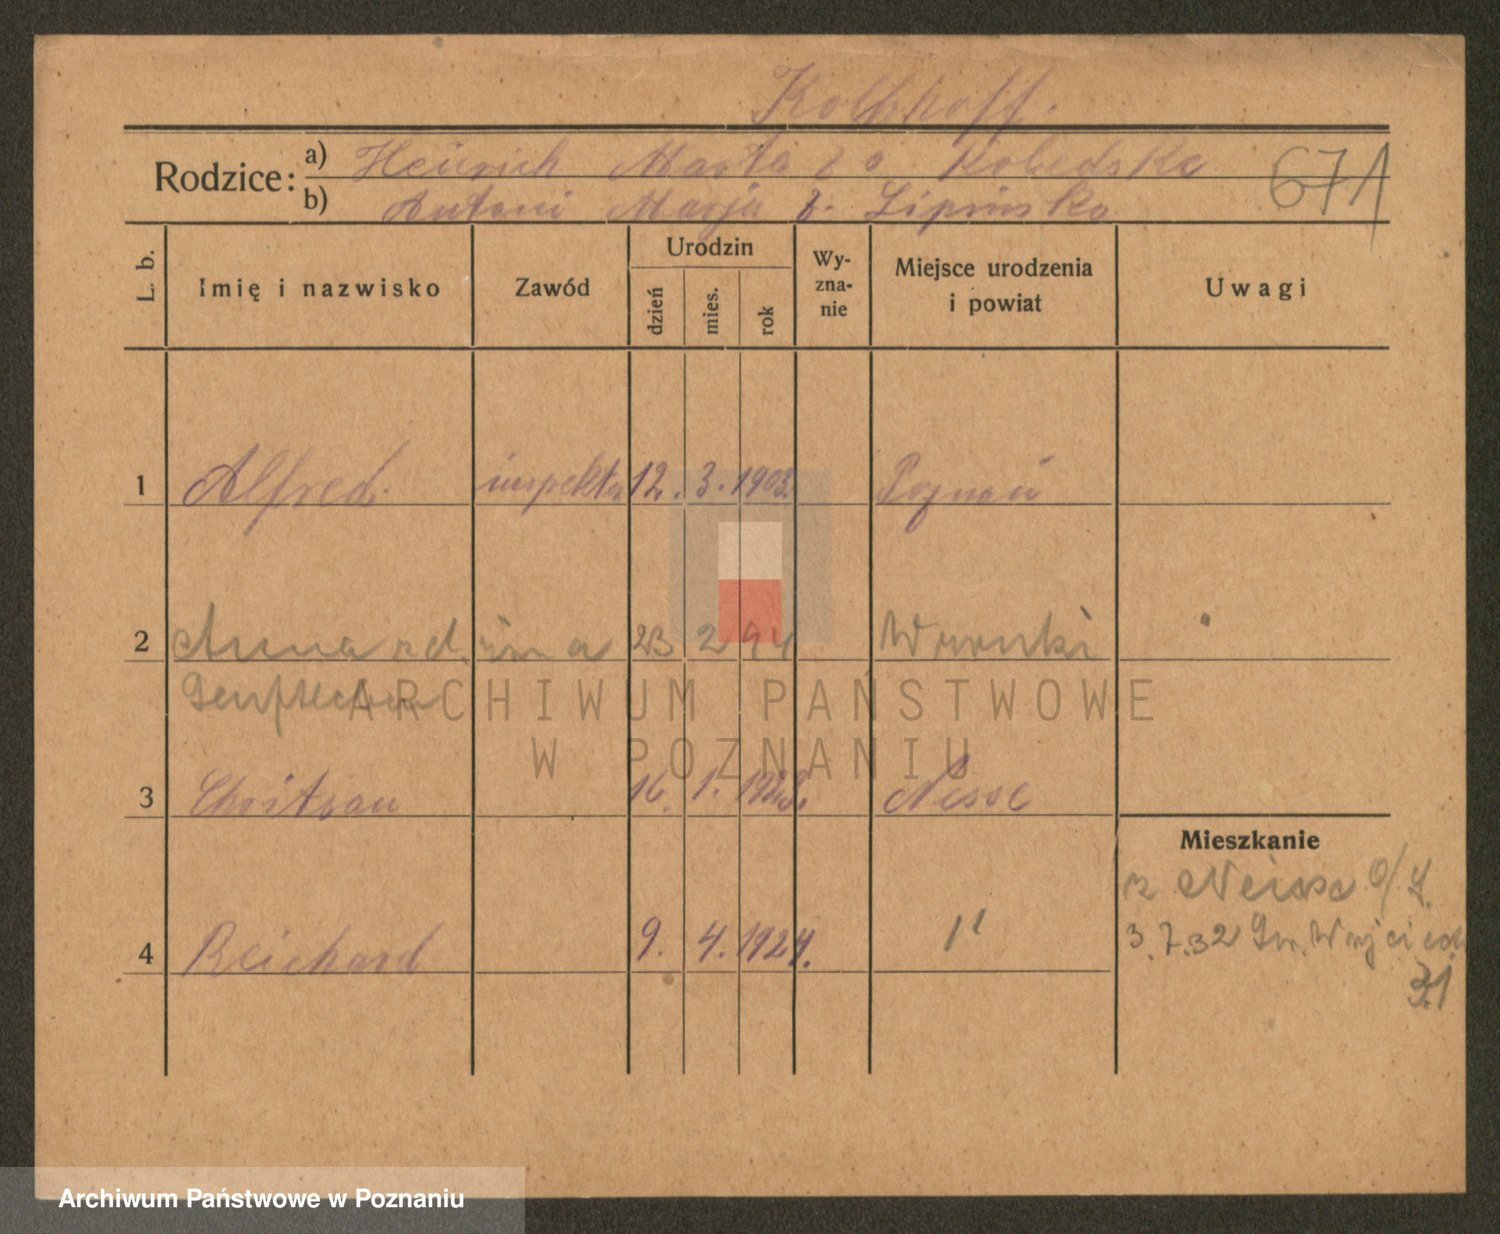 Kolkhoff.
Rodzice: a) Heinrich Marta z o Kobedska
b) Antoni Marja z. Lipinska
671
L. b. Imię i nazwisko Zawód Urodzin dzień mies. rok Wy-zna-nie Miejsce urodzenia i powiat Uwagi
1 Alfred inspektor 12. 3. 1903. Poznań
2 Anna zd. 23 2 94 Wronki
3 Christian 16. 1. Nesse
Mieszkanie
z Neisse O/S.
4 Reichard 9. 4. 1924. "
3.7.32 Św. Wojciech
31
ARCHIWUM PAŃSTWOWE
W POZNANIU
Archiwum Państwowe w Poznaniu